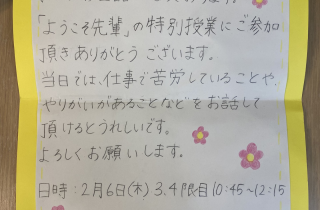 「ようこそ先輩」の特別授業にご参加
頂きありがとうございます。
当日では、仕事で苦労していることや、
やりがいがあることなどをお話して
頂けるとうれしいです。
よろしくお願いします。
日時：2月6日(木) 3.4限目10:45~12:15